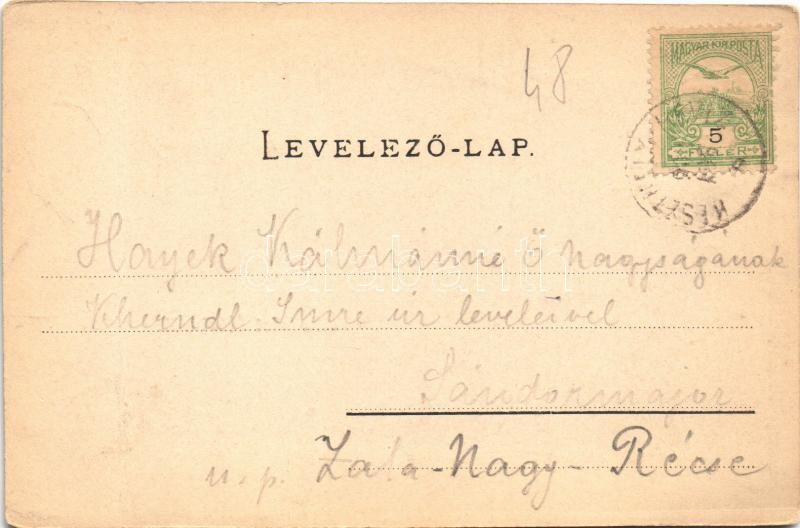 48
MAGYAR KIR. POSTA
5
FILLÉR
KESZTHELY
LEVELEZŐ-LAP.
Hayek Kálmánné Ő Nagyságának
Kherndl Imre úr leveleivel
Sándormajor
u. p. Zala-Nagy-Récse
darabanth